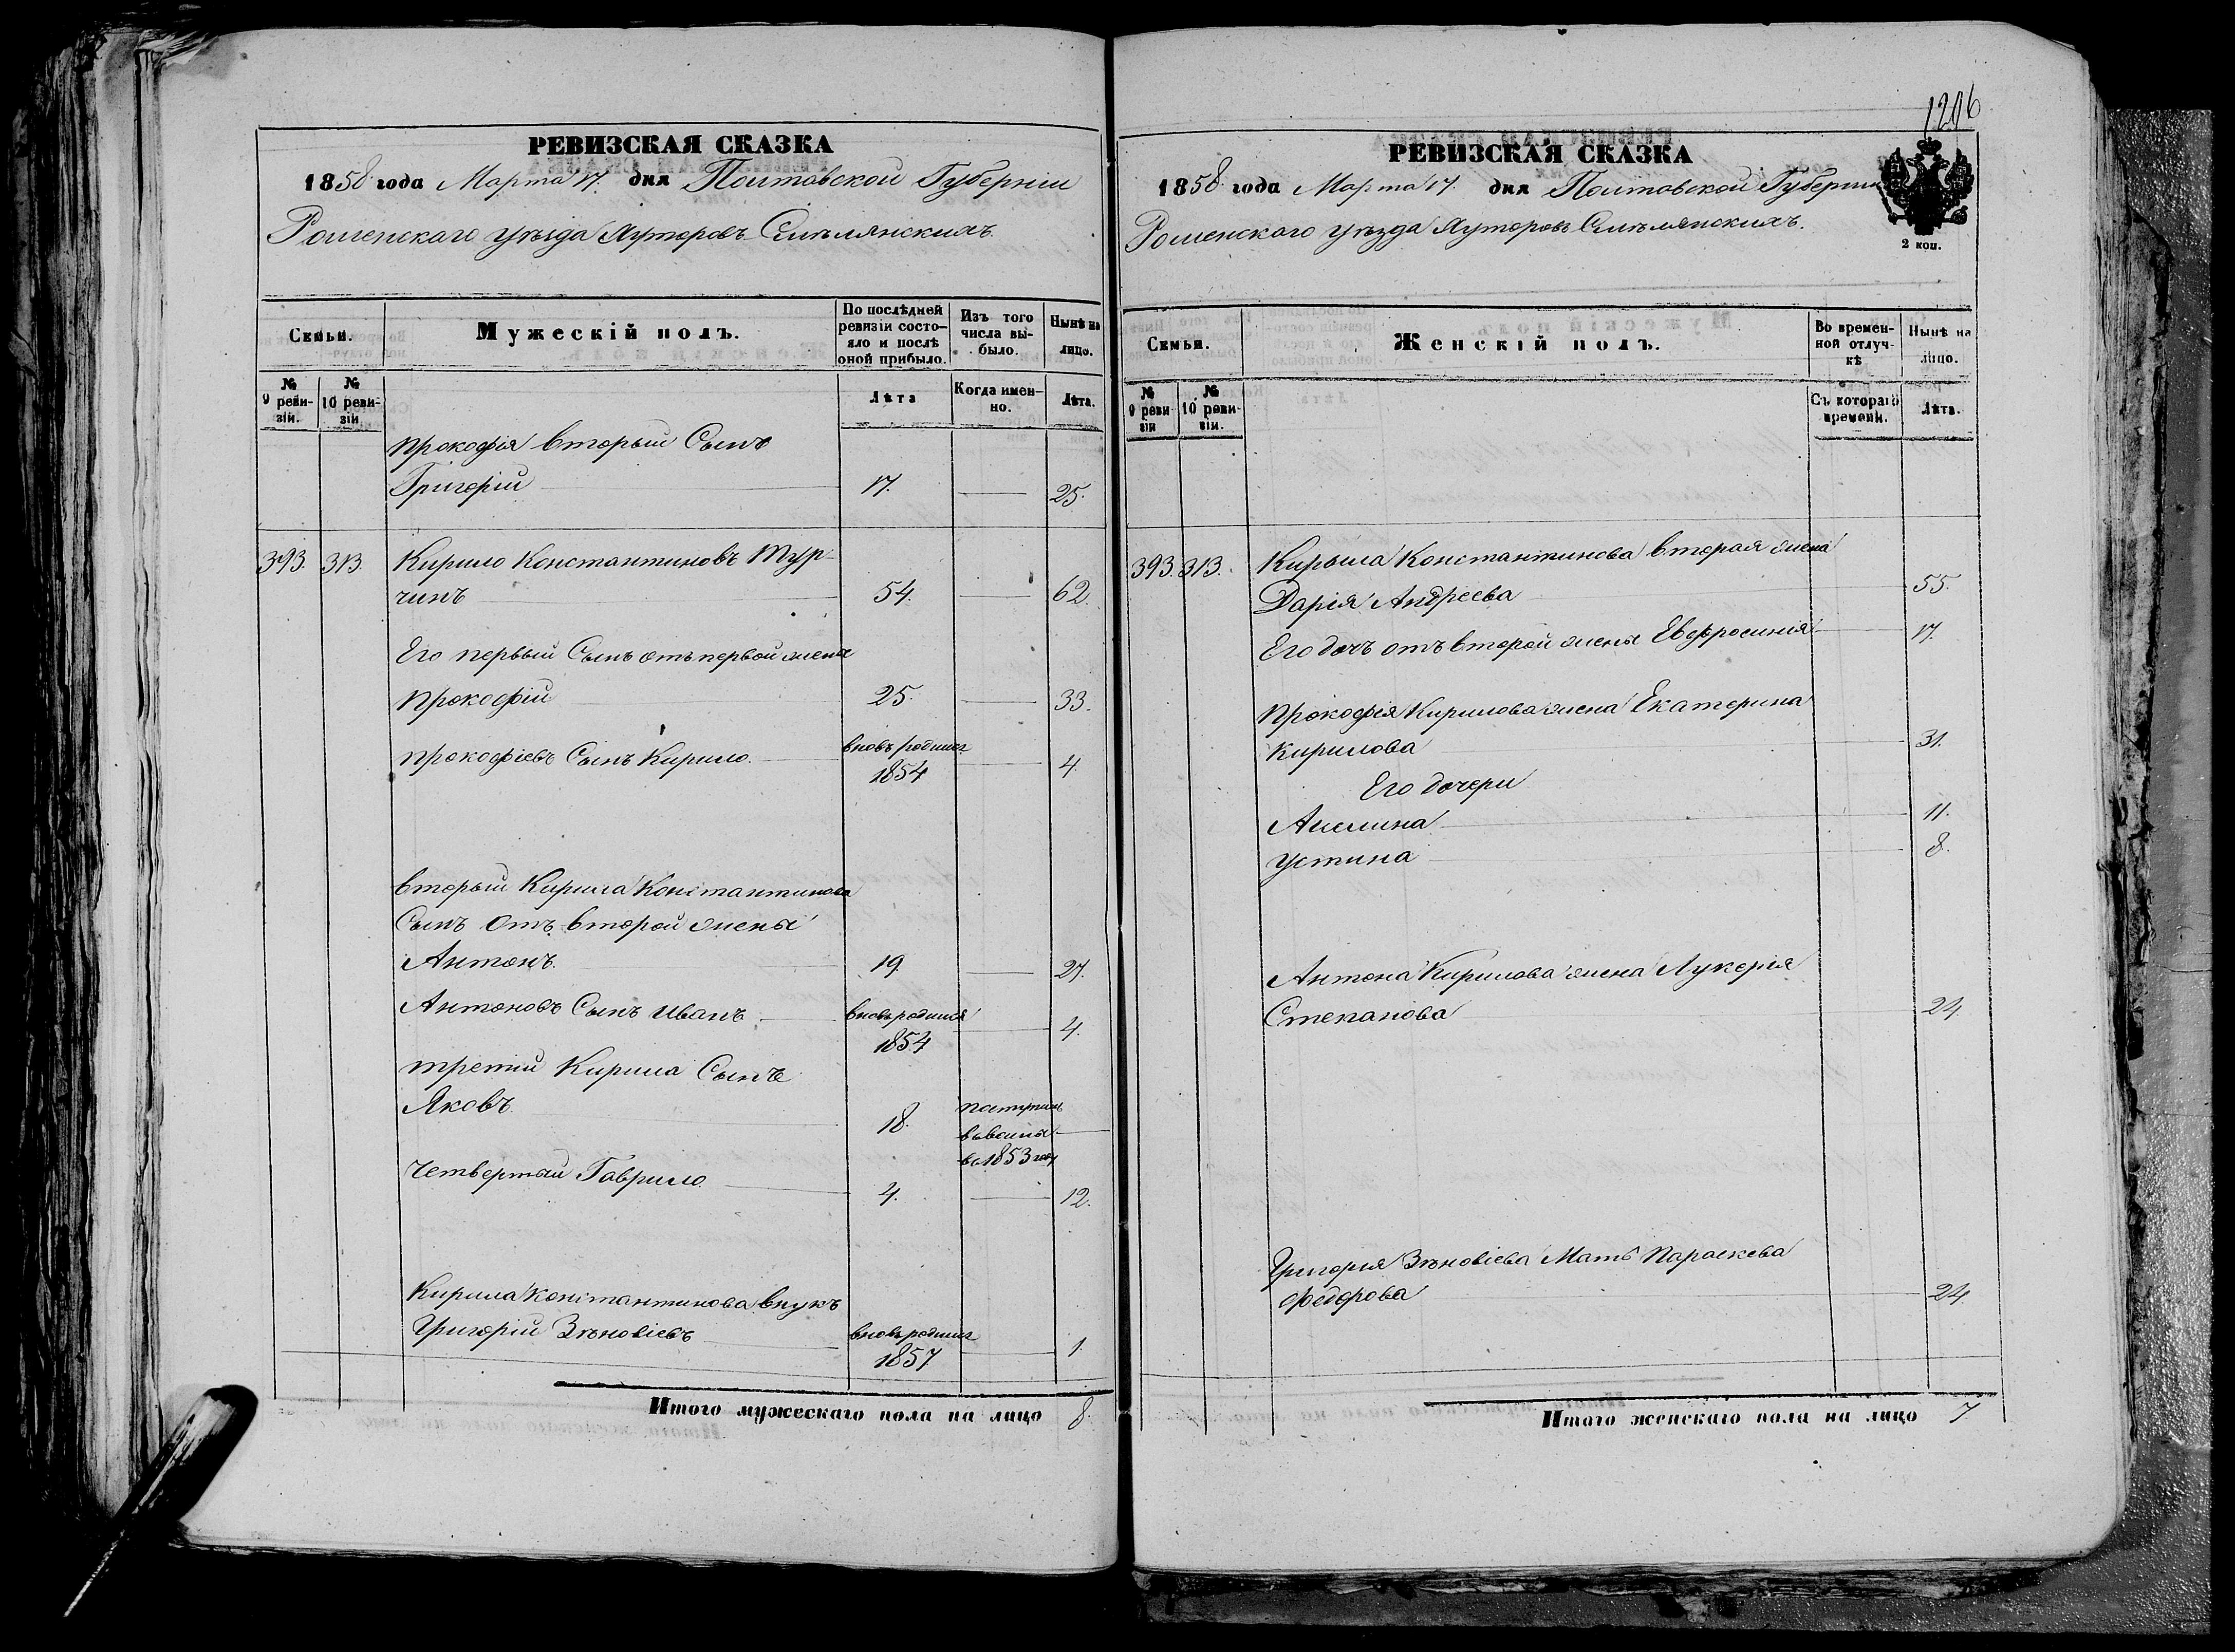 РЕВИЗСКАЯ СКАЗКА
1858 года Марта 17. дня Полтавской Губерніи
Роменскаго уѣзда Хуторовъ Смѣлянскихъ.
Семьи.
Мужескій полъ.
По послѣдней ревизіи состояло и послѣ оной прибыло.
Изъ того числа выбыло.
Нынѣ на лицо.
№ 9 ревизіи.
№ 10 ревизіи
Лѣта
Когда именно.
Лѣта.
Прокофія вторый Сынъ
Григорій 17. 25.
393. 313. Кирило Константиновъ Тур-
чинъ 54. 62.
Его первый Сынъ отъ первой жены
Прокофій 25. 33.
Прокофіевъ Сынъ Кирило. вновь родился 1854 4.
вторый Кирила Константинова
Сынъ отъ второй жены
Антонъ. 19. 27.
Антоновъ Сынъ Иванъ вновь родился 1854 4.
третій Кирила Сынъ
Яковъ 18. 1853 году
Четвертый Гаврило 4. 12.
Кирила Константинова внукъ
Григорій Зѣновіевъ вновь родился 1857 1.
Итого мужескаго пола на лицо 8.
1206
РЕВИЗСКАЯ СКАЗКА
1858 года Марта 17. дня Полтавской Губерніи
Роменскаго уѣзда Хуторовъ Смѣлянскихъ.
2 коп.
Семьи.
Женскій полъ.
Во временной отлучкѣ
Нынѣ на лицо.
№ 9 ревизіи
№ 10 ревизіи.
Съ котораго времени.
Лѣта.
393. 313. Кирыла Константинова вторая жена
Дарія Андреева 55.
Его дочь отъ второй жены Евфросинія 17.
Прокофія Кирилова жена Екатерина
Кирилова 31.
Его дочери
Акилина 11.
Устина 8.
Антона Кирилова жена Лукерія
Степанова 24
Григорія Зѣновіева Мать Параскева
Федорова 24.
Итого женскаго пола на лицо 7